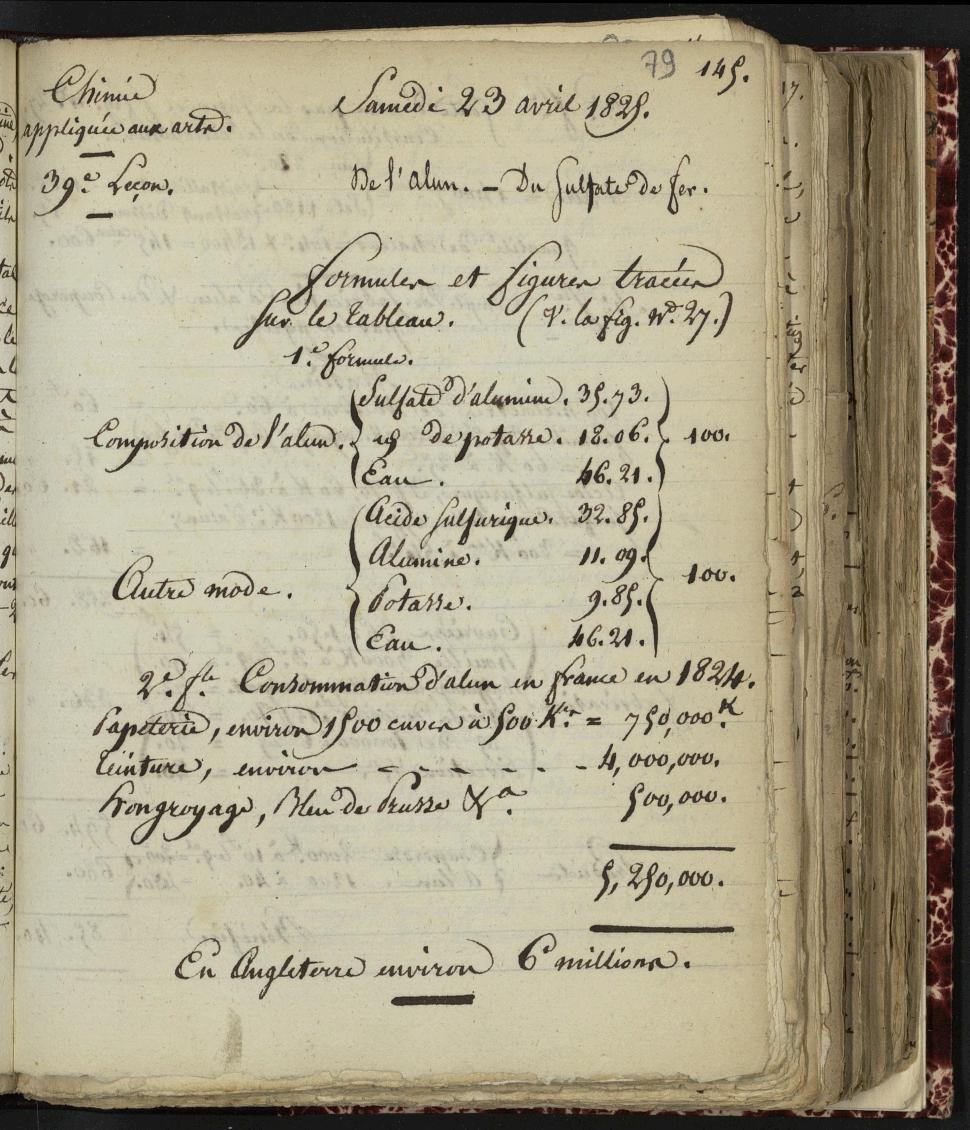 79 145.
Chimie
appliquée aux arts.
Samedi 23 avril 1825.
39.e Leçon.
De l'alun. – Du Sulfate de fer.
Formules et figures tracées
Sur le Tableau. (V. la fig. N.o 27.)
1.e formule.
Composition de l'alun.
Sulfate d'alumine. 35.73.
id de potasse. 18.06.
Eau. 46.21.
100.
Autre mode.
Acide sulfurique. 32.85.
Alumine. 11.09.
Potasse. 9.85.
Eau. 46.21.
100.
2.e f.le Consommation d'alun en france en 1824.
Papeterie, environ 1500 cuves à 500 K.es = 750,000.K
Teinture, environ – – – – – – 4,000,000.
Hongroyage, Bleu de Prusse &.a 500,000.
5,250,000.
En Angleterre environ 6 millions.